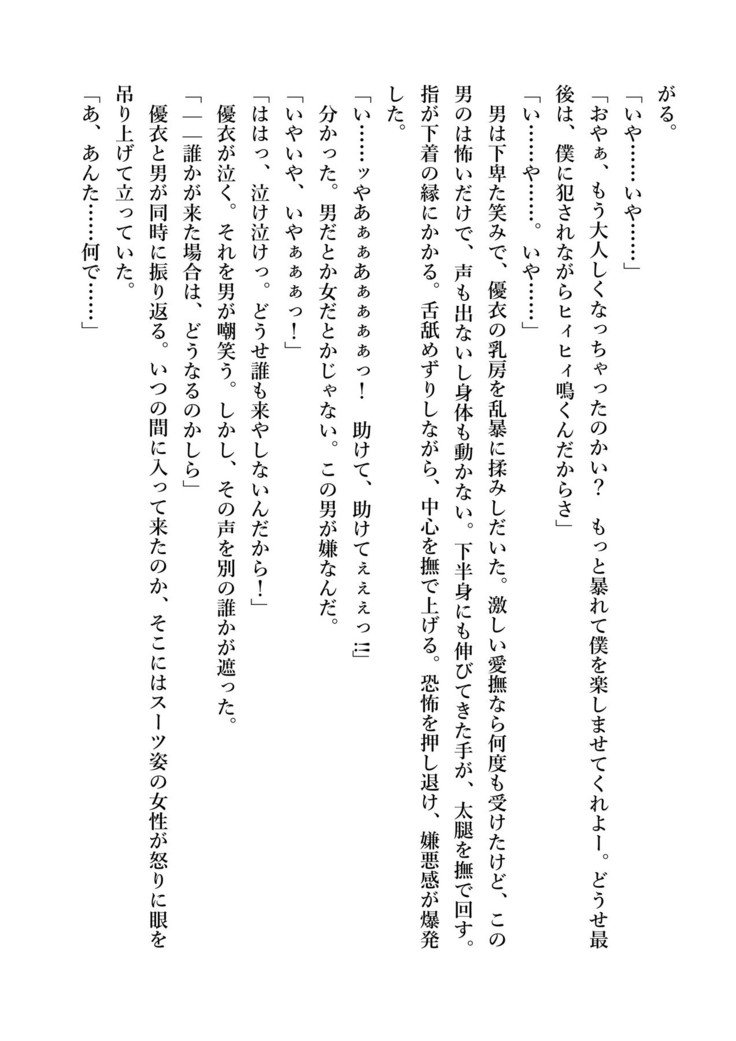 がる。
「いや……いや……」
「おやぁ、もう大人しくなっちゃったのかい？　もっと暴れて僕を楽しませてくれよー。どうせ最
後は、僕に犯されながらヒィヒィ鳴くんだからさ」
「い……や……。いや……」
　男は下卑た笑みで、優衣の乳房を乱暴に揉みしだいた。激しい愛撫なら何度も受けたけど、この
男のは怖いだけで、声も出ないし身体も動かない。下半身にも伸びてきた手が、太腿を撫で回す。
指が下着の縁にかかる。舌舐めずりしながら、中心を撫で上げる。恐怖を押し退け、嫌悪感が爆発
した。
「い……ッやあぁぁあぁぁぁぁっ！　助けて、助けてぇぇぇっ!!」
　分かった。男だとか女だとかじゃない。この男が嫌なんだ。
「いやいや、いやぁぁぁっ！」
「ははっ、泣け泣けっ。どうせ誰も来やしないんだから！」
　優衣が泣く。それを男が嘲笑う。しかし、その声を別の誰かが遮った。
「――誰かが来た場合は、どうなるのかしら」
　優衣と男が同時に振り返る。いつの間に入って来たのか、そこにはスーツ姿の女性が怒りに眼を
吊り上げて立っていた。
「あ、あんた……何で……」